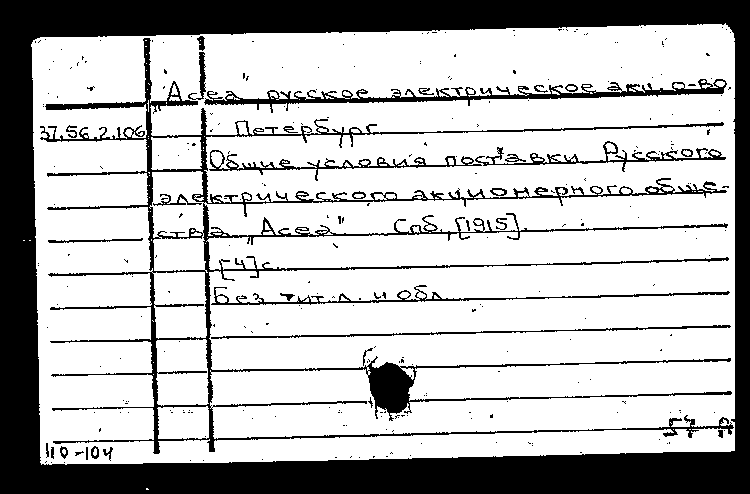 „Асеа" русское электрическое акц. о-во.
37.56.2.106 Петербург
Общие условия поставки Русского
электрического акционерного обще-
ства „Асеа" Спб, [1915].
[4]с.
Без тит.л. и обл.
110-104